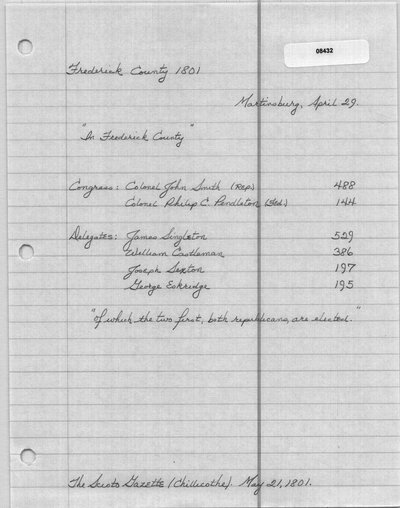 08432
Frederick County 1801
Martinsburg, April 29.
"In Frederick County"
Congress: Colonel John Smith (Rep.) 488
Colonel Philip C. Pendleton (Fed.) 144
Delegates: James Singleton 529
William Castleman 386
Joseph Sexton 197
George Eskridge 195
"Of which the two first, both republicans, are elected."
The Scioto Gazette (Chillicothe). May 21, 1801.